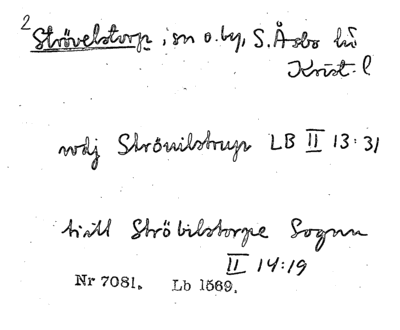 2 Strövelstorp, sn o. by, S. Åsbo hd
Krist. l
vdj Ströuilstrup LB II 13:31
tiill Ströbilstorpe Sognn
II 14:19
Nr 7081. Lb 1569.